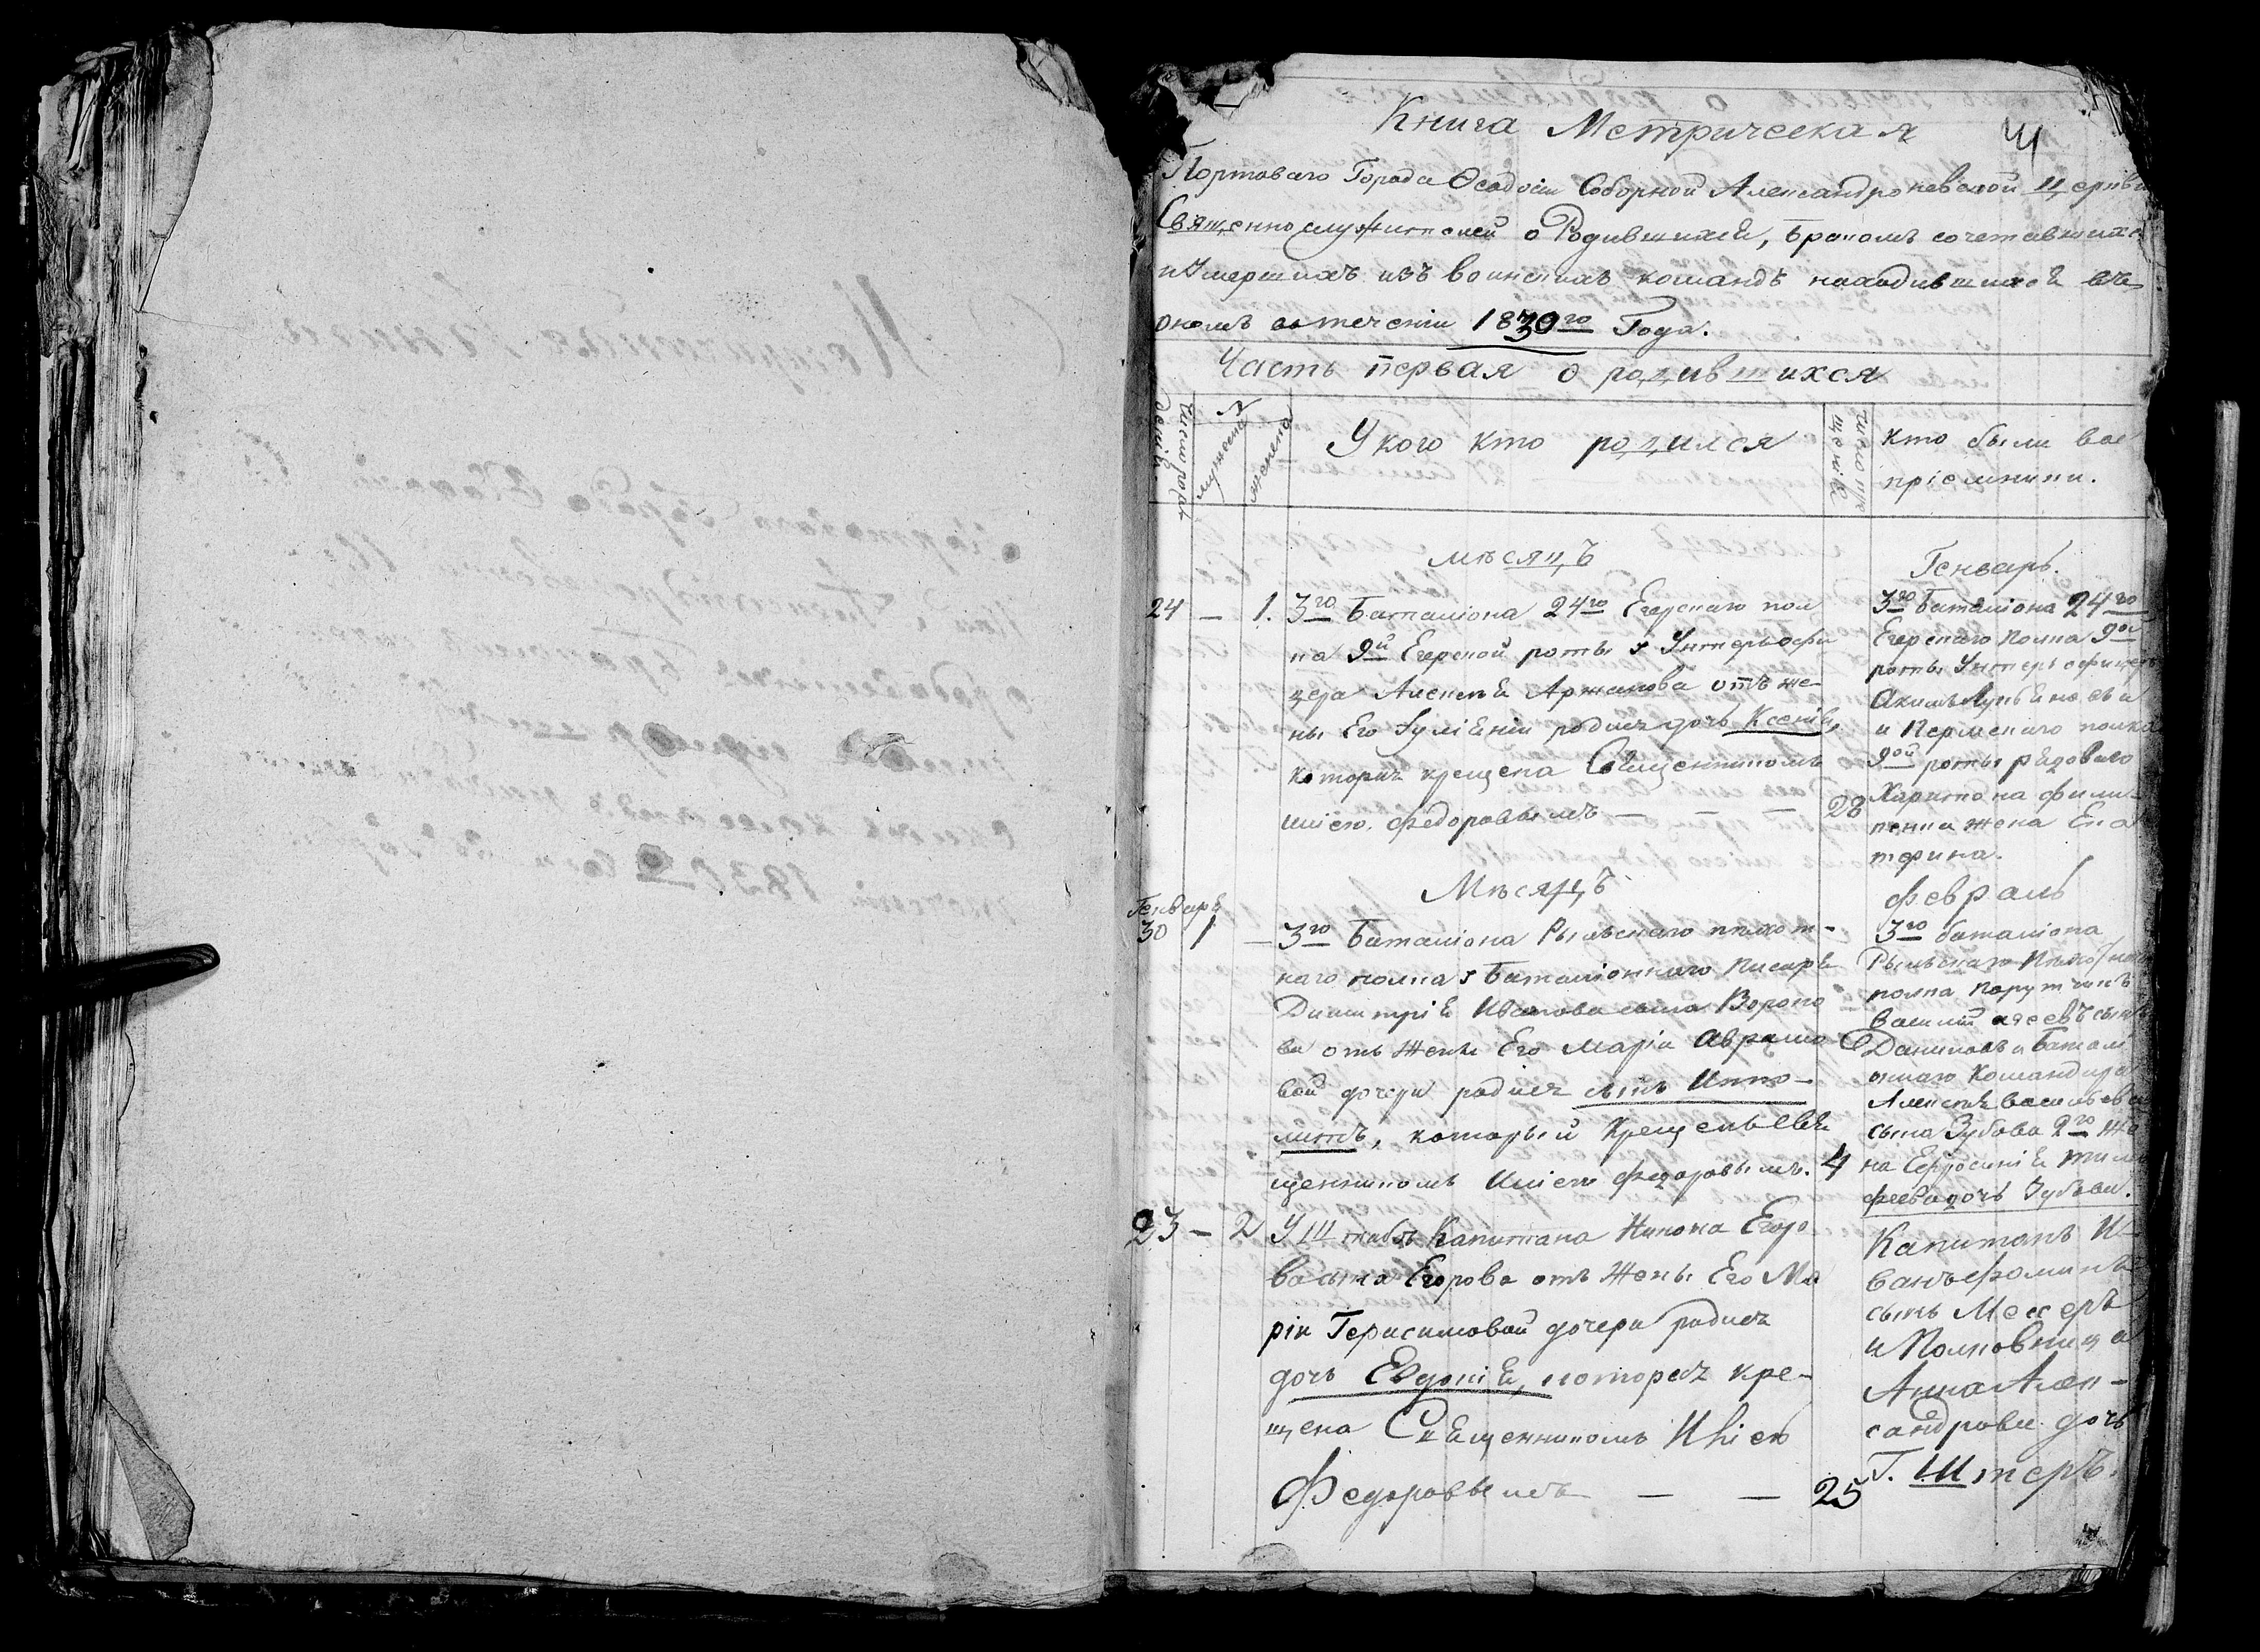 Книга Метрическая
4
Портоваго Города Ѳеодосіи Соборной Александроневской Церкви
Священнослужителей о Родившихся, бракомъ сочетавшихся
и Умершихъ изъ воинскихъ командъ находившихся въ
ономъ въ теченіи 1830го Года.
Часть первая о родившихся
Число рожденія
№
мужеска
женска
У кого кто родился
Число крещенія
кто были вос
пріемники.
мѣсяцъ
Генварь.
24 — 1. 3го Баталіона 24го Егерскаго пол
ка 9й Егерской роты у Унтеръ офи
цера Алексѣя Аржанова отъ же-
ны Его родися дочь Ксенія,
которая крещена Священникомъ
Федоровымъ — — — 28
3го баталіона 24го
Егерскаго полка 9ой
роты Унтеръ офицеръ
и Пермскаго полка
9ой роты рядоваго
Харитона Фили-
пенка жена Ека
терина.
Мѣсяцъ
Февраль
Генваря
30 1 — 3го Баталіона Рыльскаго пѣхот-
наго полка у Баталіоннаго Писаря
Димитрія Иванова сына Воропо
ва отъ Жены Его Маріи Аврамо
вой дочери родися сынъ Иппо-
литъ, который Крещенъ Свя
щенникомъ Федоровымъ. 4
3го баталіона
Рыльскаго Пѣхотнаго
полка Порутчикъ
Василій сынъ
Даниловъ и Баталі
оннаго Командира
Алексѣя Васильева
сына Зубова 2го Же
на Ефросинія Тимо
феева дочь Зубова.
23 — 2 У Штабсъ Капитана Никона Егоро
ва сына Егорова отъ Жены Его Ма
ріи Герасимовой дочери родися
дочь Евдокія, которая кре-
щена Священникомъ
Федоровымъ — — 25
Капитанъ И-
ванъ Фоминъ
сынъ Мессеръ
и Полковница
Анна Алек-
сандрова дочь
Г. Штеръ.